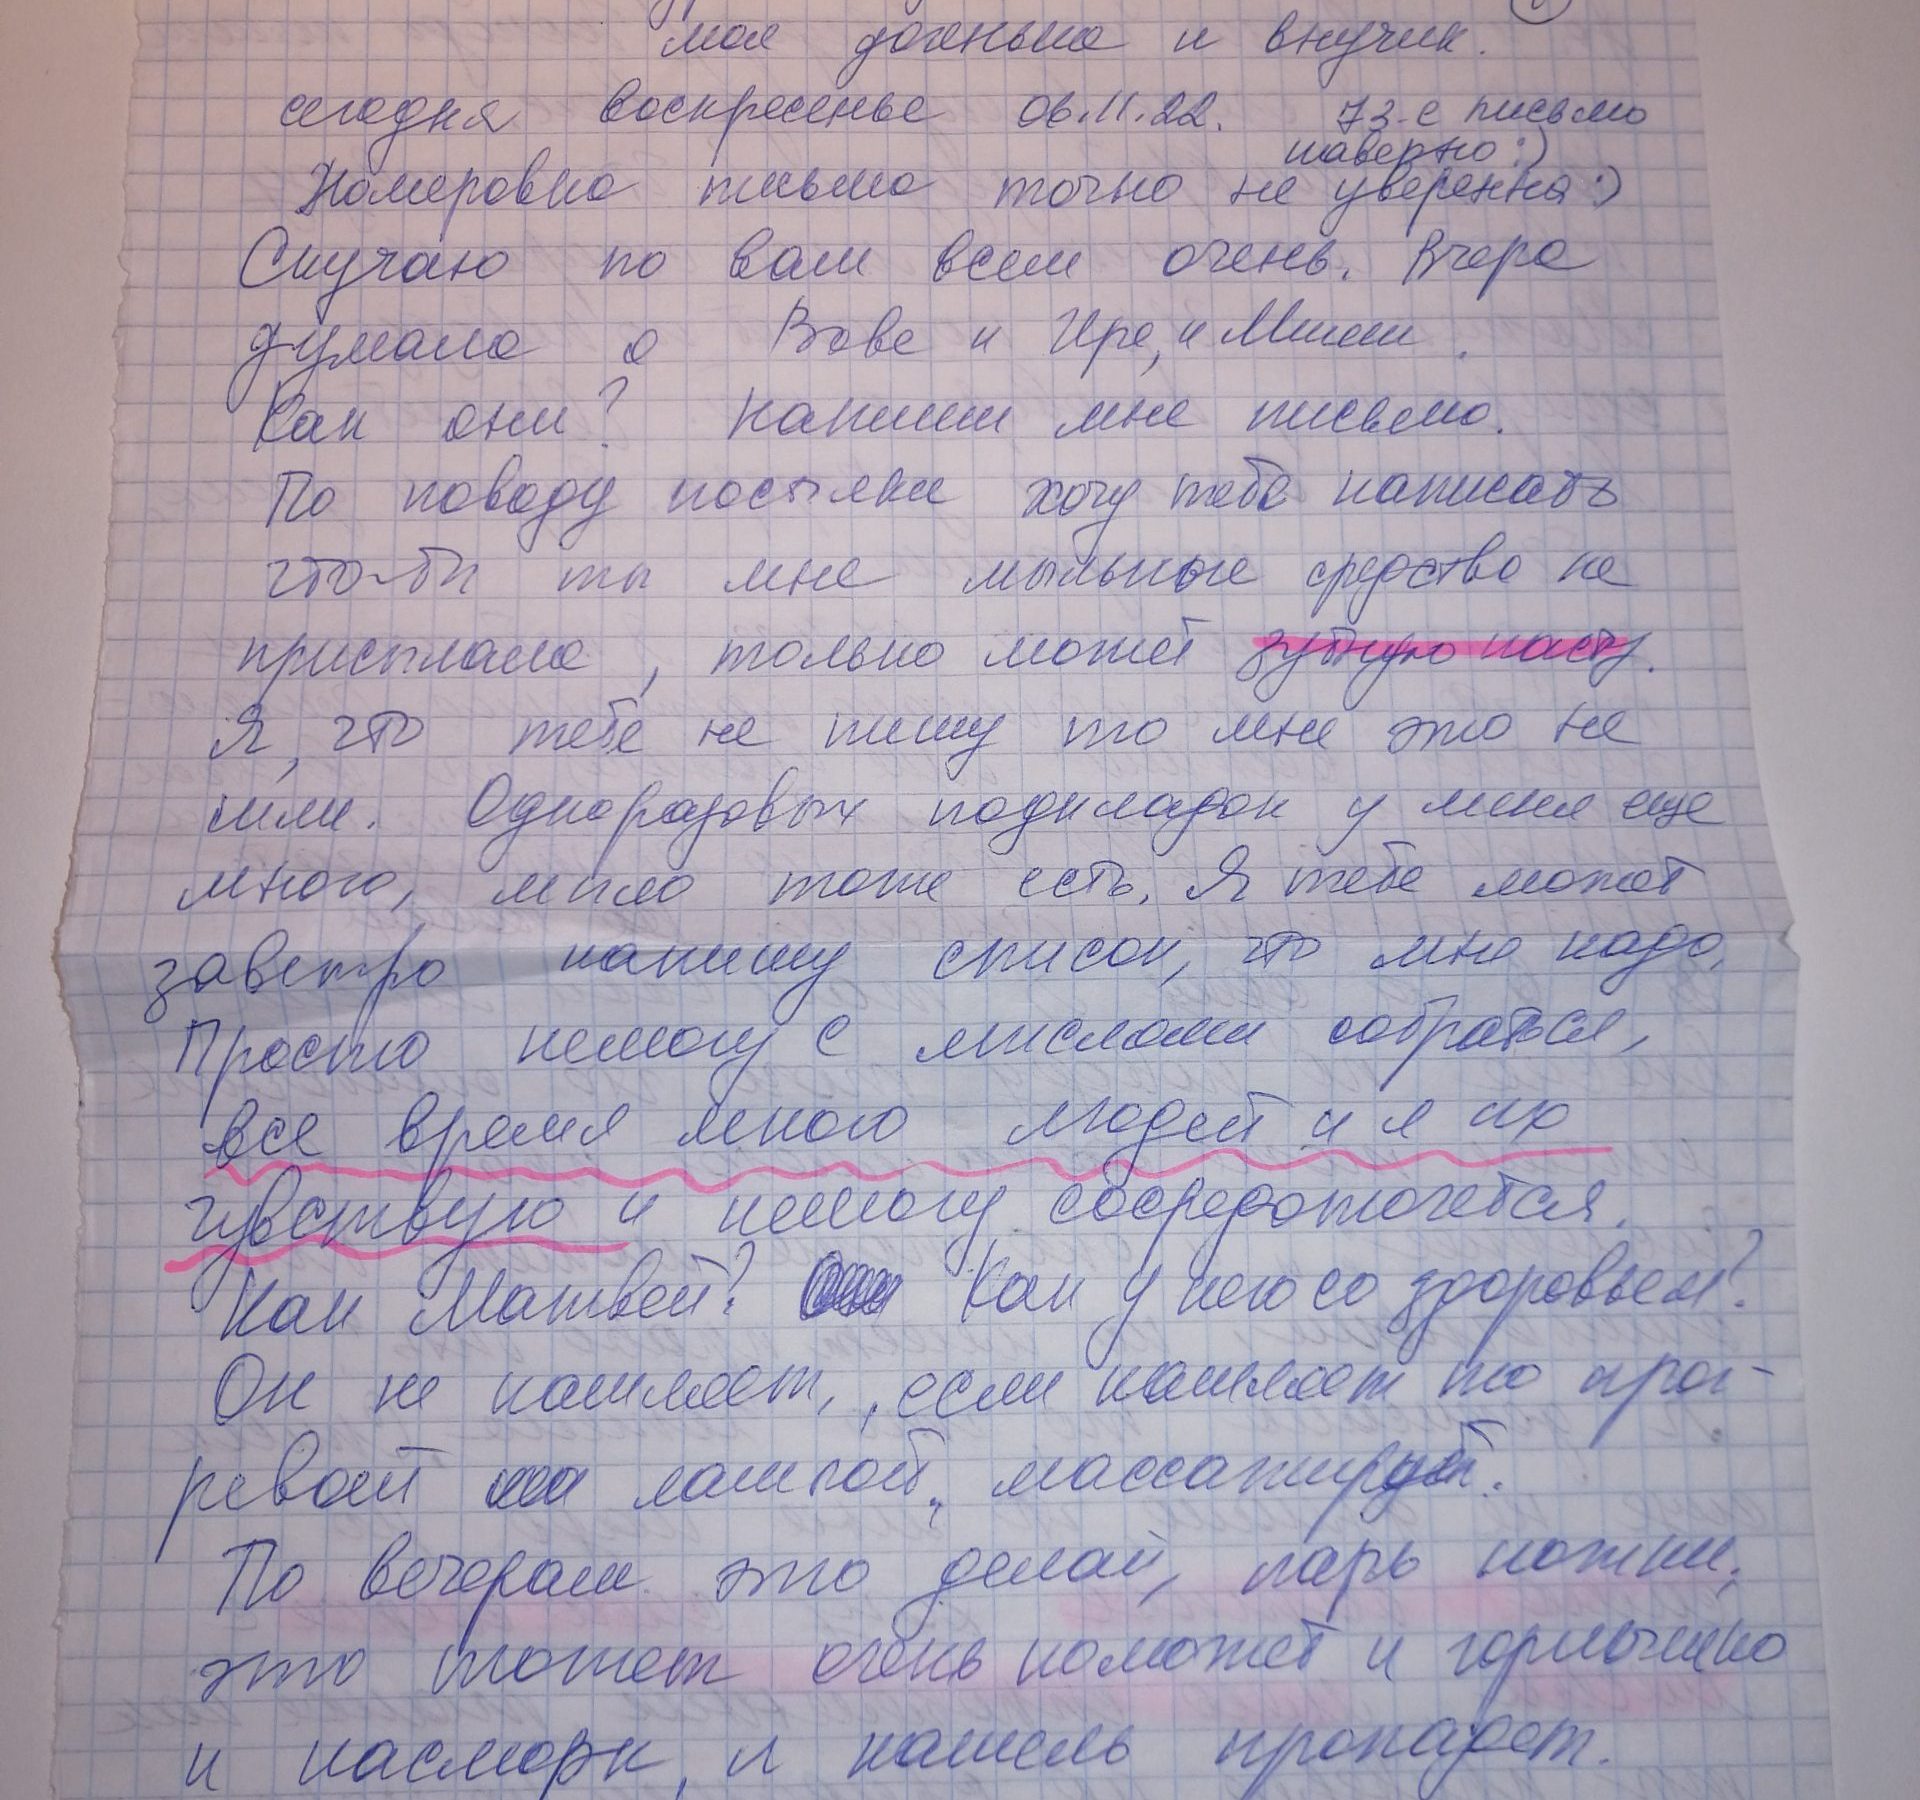 моя доченька и внучик.
сегодня воскресенье 06.11.22. 73-е письмо
наверно:)
Номеровка письма точно не уверенна:)
Скучаю по вам всем очень. Вчера
думала о Вове и Ире, и Миши.
Как они? Напиши мне письмо.
По поводу посылки хочу тебе написать
что-бы ты мне мыльные средства не
присылала, только может зубную пасту.
Я, что тебе не пишу то мне это не
шли. Одноразовых подкладок у меня еще
много, мыло тоже есть. Я тебе может
завтро напишу список, что мне надо.
Просто немогу с мыслями собраться,
все время много людей и я их
чувствую и немогу сосредоточется.
Как Матвей? Как у него со здоровьем?
Он не кашляет, если кашляет то прог-
ревай лампой, массажируй.
По вечерам это делай, парь ножки,
это может очень поможет и горлышко
и насморк, и кашель пропадет.